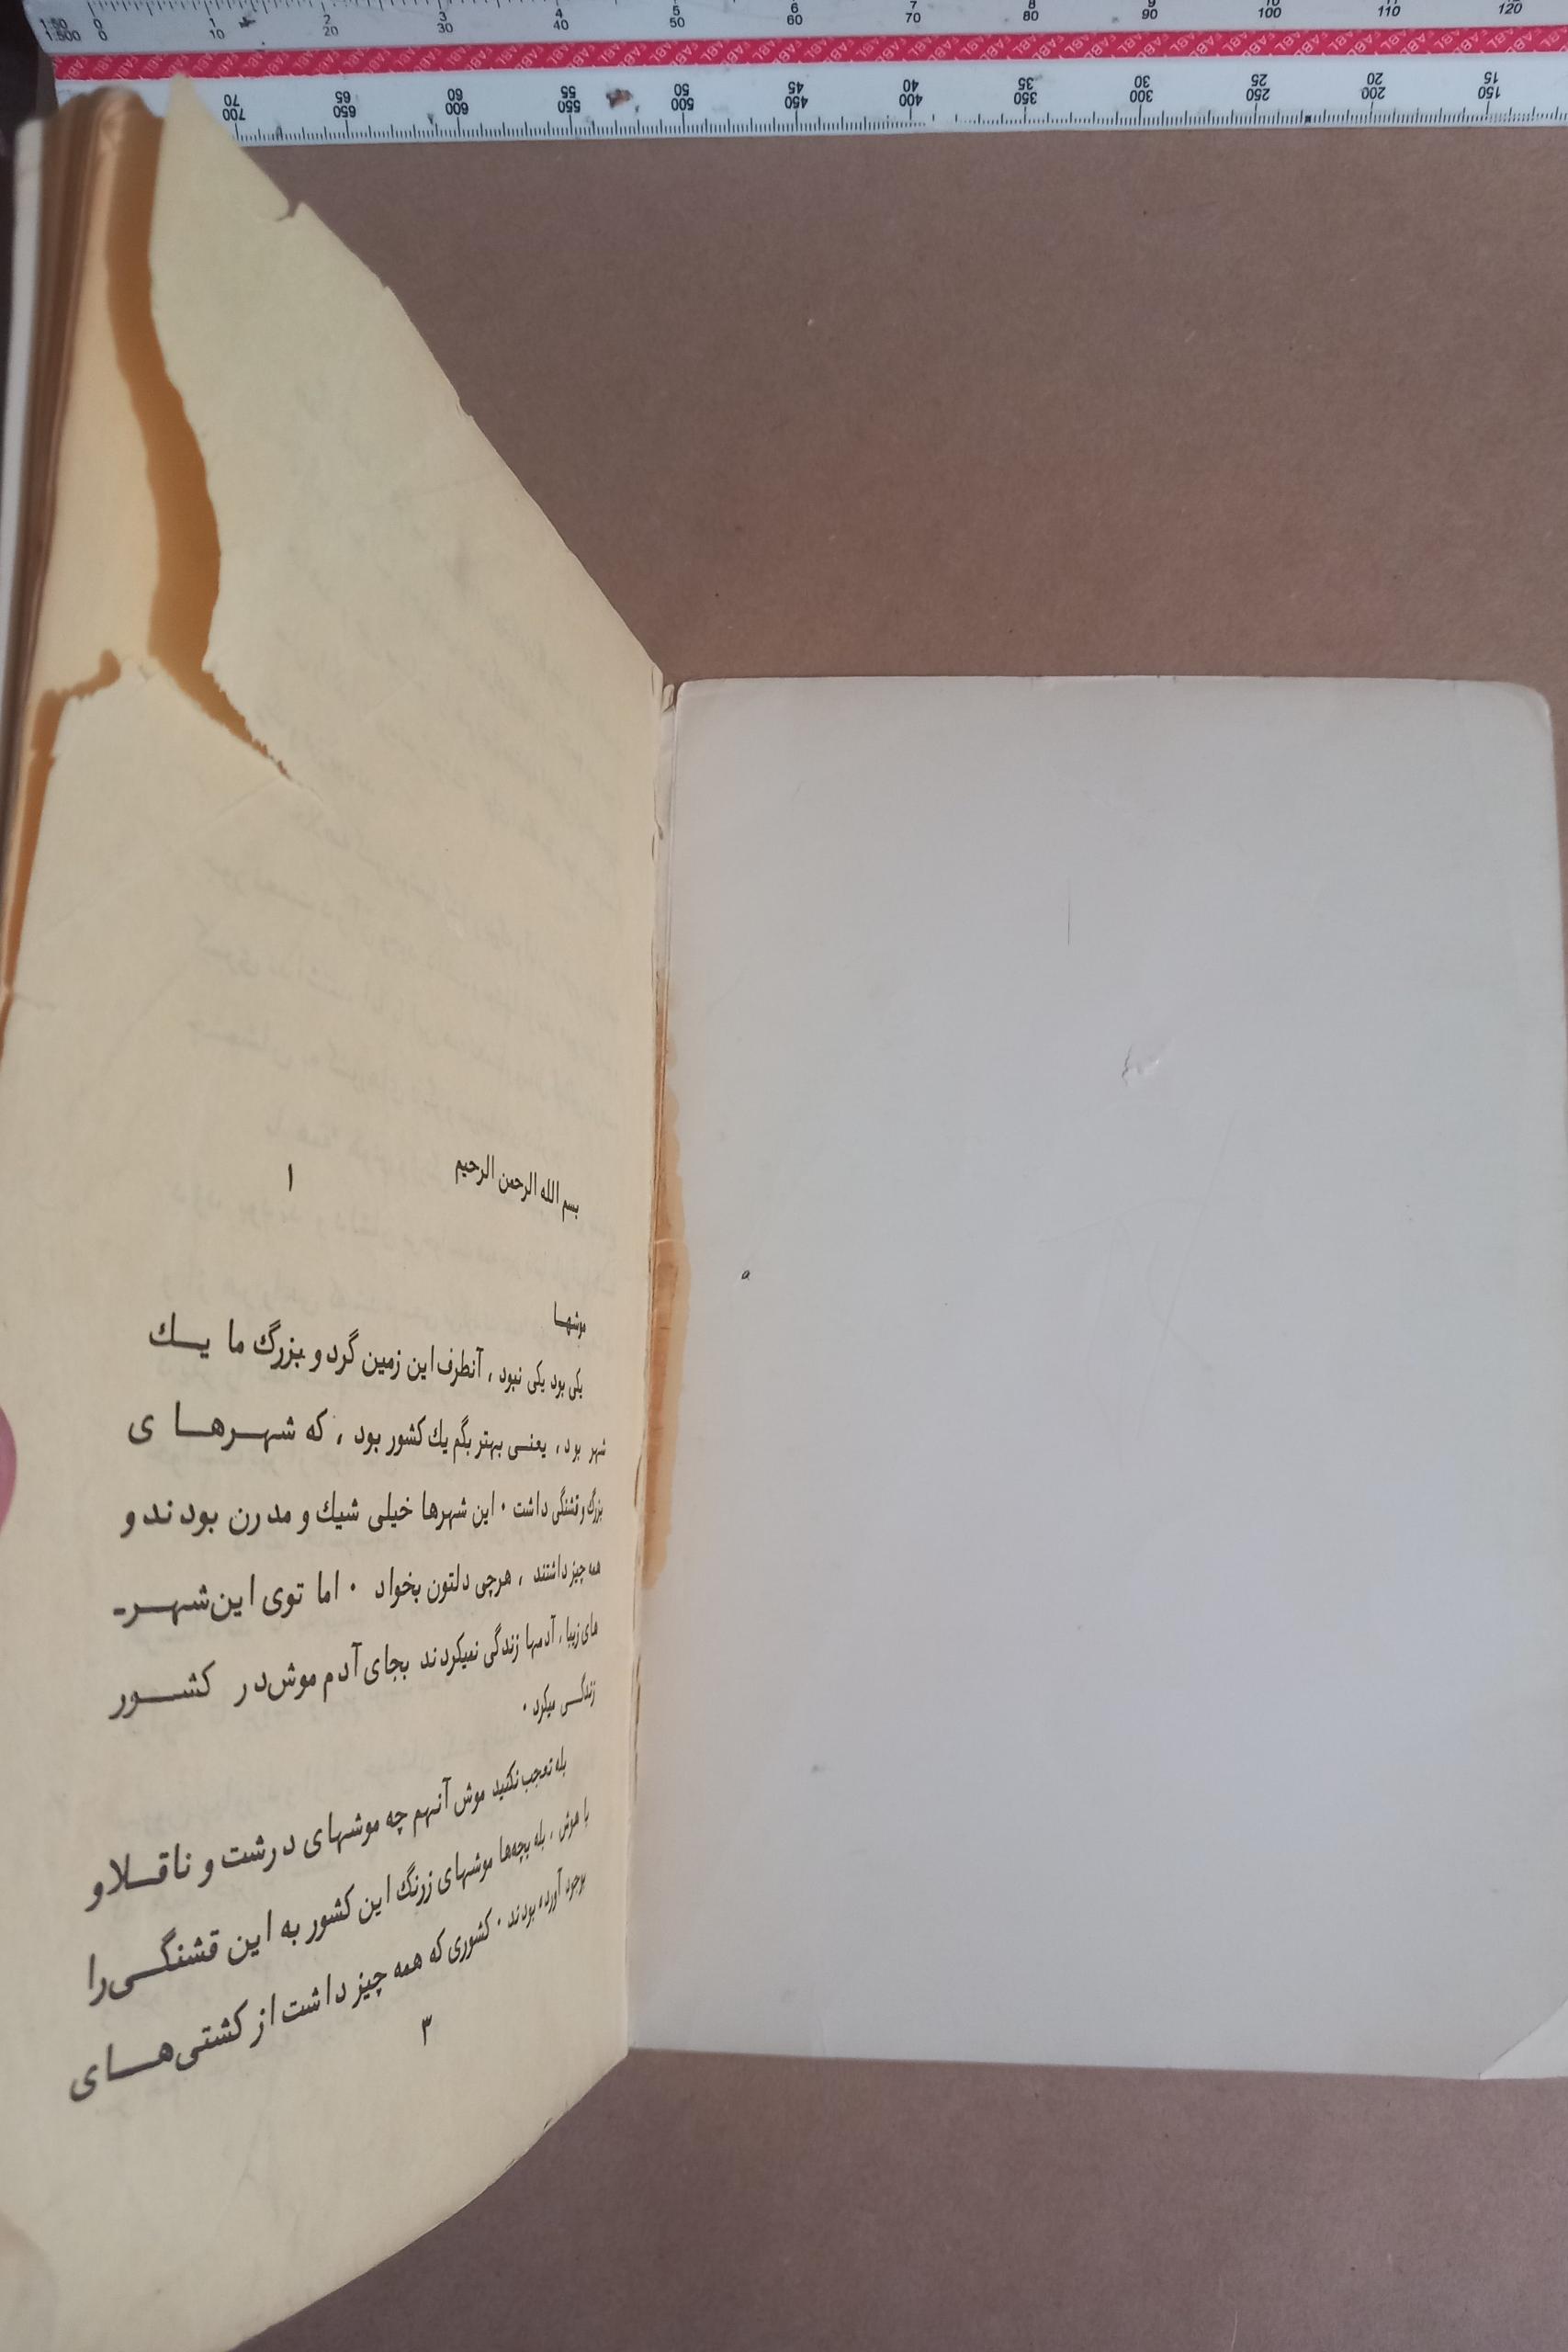 1:50 0 1 2 3 4 5 6 7 8 9 10 11 120
1:500 0 10 20 30 40 50 60 70 80 90 100 110
70 65 60 55 50 45 40 35 30 25 20 15
700 650 600 550 500 450 400 350 300 250 200 150
بسم الله الرحمن الرحیم
۱
موشها
یکی بود یکی نبود ، آنطرف این زمین گرد و بزرگ ما یک
شهر بود ، یعنی بهتر بگم یک کشور بود ، که شهرها ی
بزرگ و قشنگی داشت . این شهرها خیلی شیک و مدرن بودند و
همه چیز داشتند ، هرچی دلتون بخواد . اما توی این شهر-
های زیبا ، آدمها زندگی نمیکردند بجای آدم موش در کشور
زندگی میکرد .
بله تعجب نکنید موش آنهم چه موشهای درشت و ناقلا و
با هوش ، بله بچه‌ها موشهای زرنگ این کشور به این قشنگی را
بوجود آورده بودند . کشوری که همه چیز داشت از کشتی‌های
۳